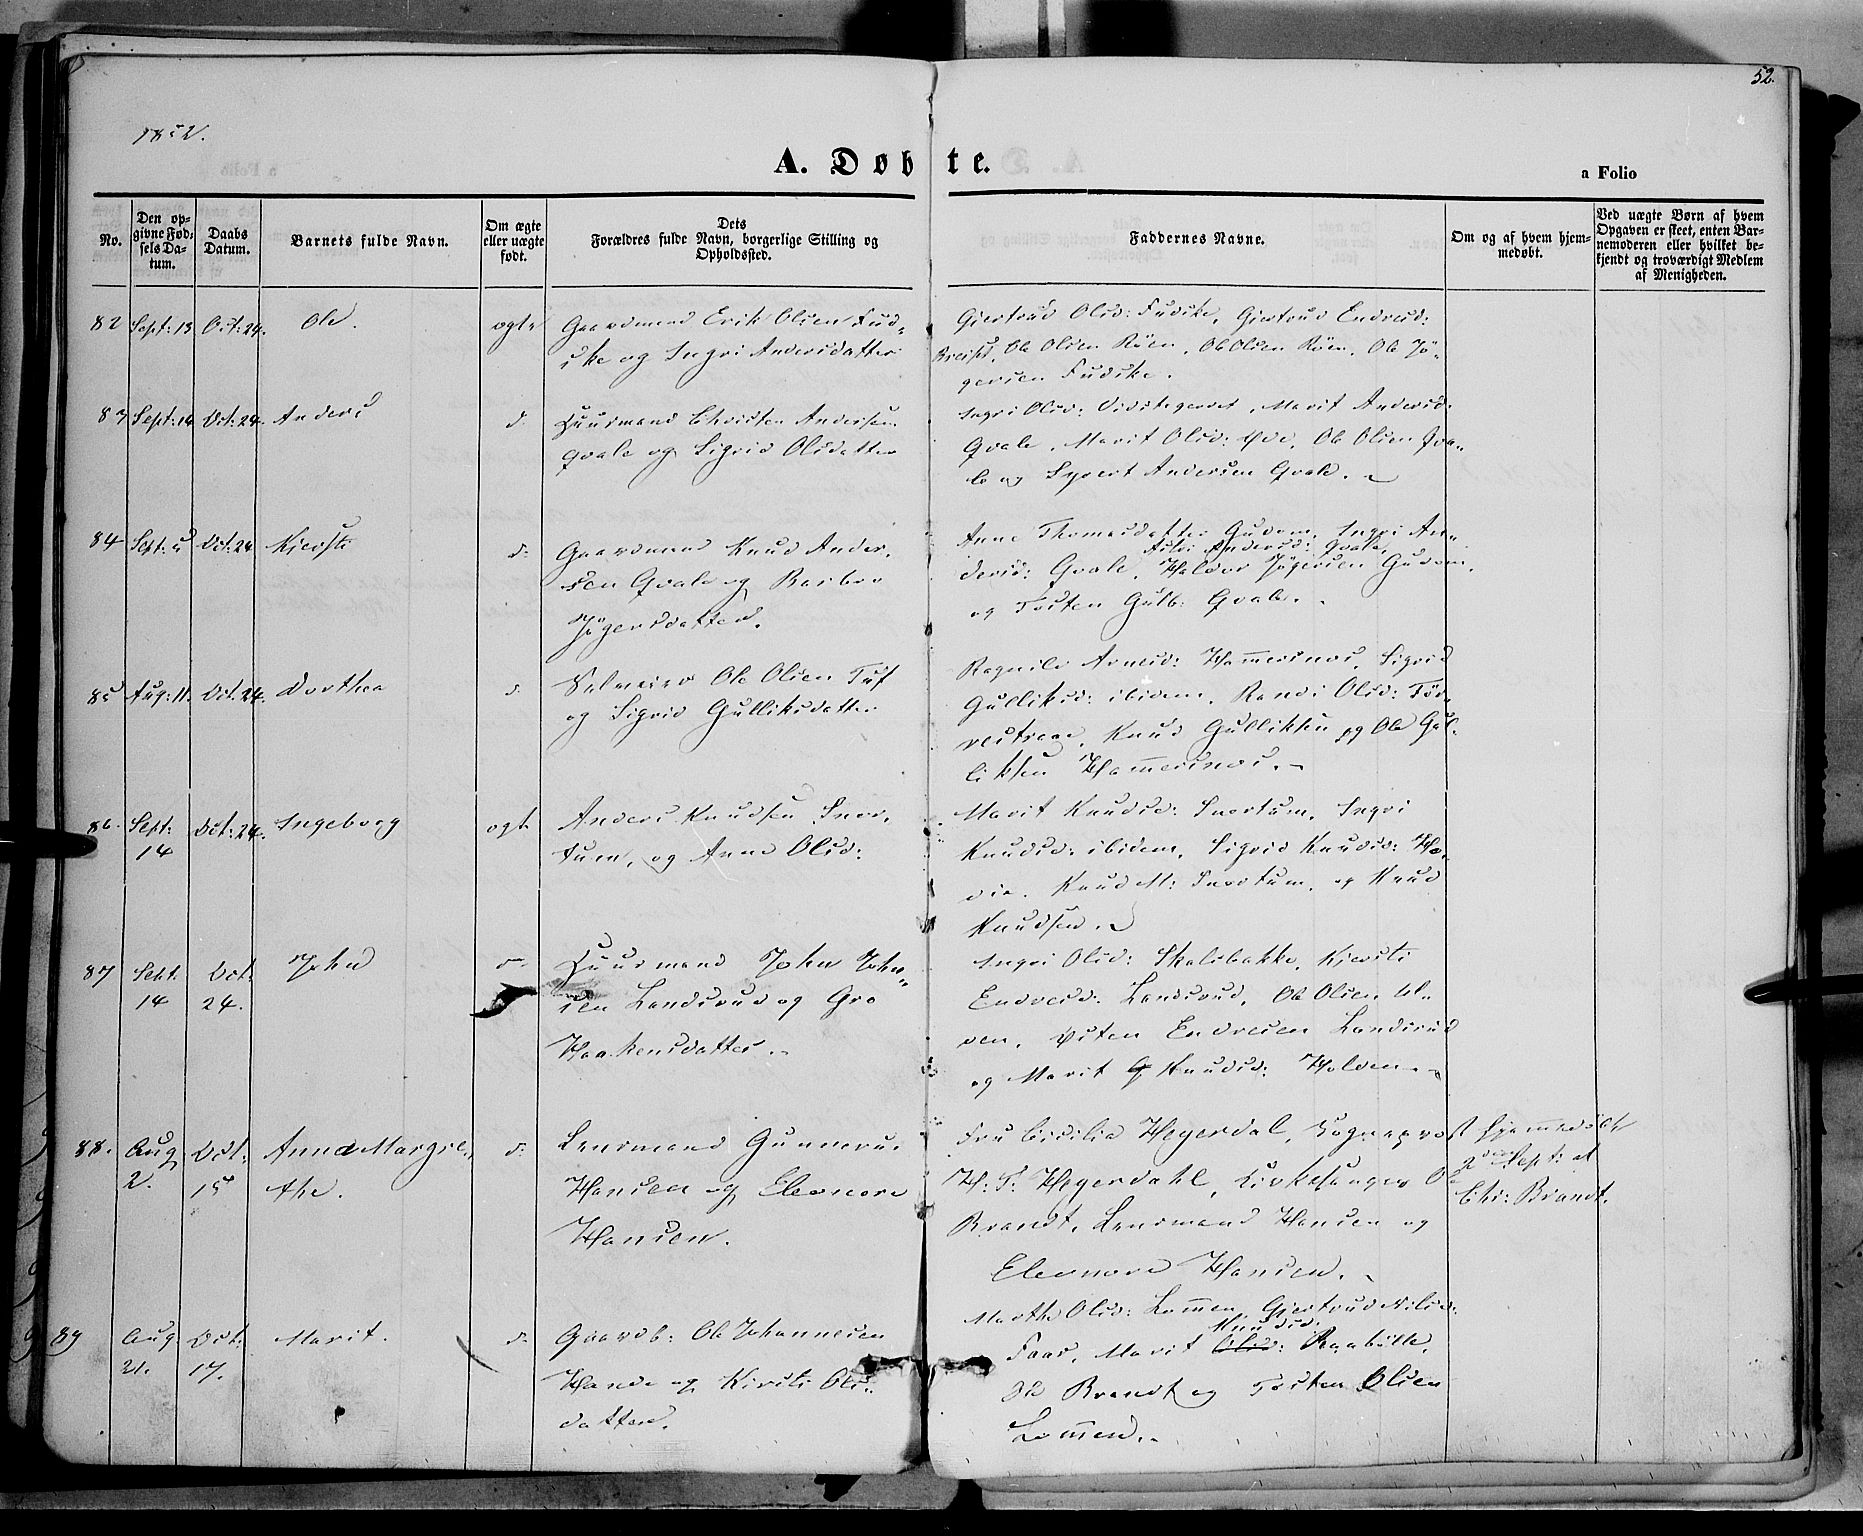 52.
1852.
A. Døbte.
a Folio
No.
Den op-
givne Fød-
sels Da-
tum.
Daabs
Datum.
Barnets fulde Navn.
Om ægte
eller uægte
født.
Dets
Forældres fulde Navn, borgerlige Stilling og
Opholdssted.
Faddernes Navne.
Om og af hvem hjem-
medøbt.
Ved uægte Børn af hvem
Opgaven er skeet, enten Bar-
nemoderen eller hvilket be-
kjendt og troværdigt Medlem
af Menigheden.
82 Sept: 13 Oct: 24. Ole. ægte
Gaardmand Erik Olsen Fud-
ske og Ingri Andersdatter
Giertrud Olsd: Fudske, Giertrud Endresd:
Ole Olsen Røen, Ole Olsen Røen, Ole Jø-
gersen Fudske.
83 Sept: 14 Oct: 24. Anders d.
Huusmand Christen Andersen
Qvale og Sigrid Olsdatter
Ingri Olsd: Marit Andersd:
Qvale, Marit Olsd: Ole Olsen Qva-
le og Syvert Andersen Qvale.
84 Sept: 5 Oct: 24 Kjersti d:
Gaardmand Knud Ander-
sen Qvale og Barbro
Jøgersdatter.
Anne Thomasdatter Gudom, Ingri An-
Astri Andersd: Qvale,
dersd: Qvale, Haldor Jøgersen Gudom,
og Tosten Gulb: Qvale.
85 Aug: 11. Oct: 24. Dorthea d.
Selveier Ole Olsen Tuf
og Sigrid Gulliksdatter
Ragnild Arnesd: Hammersnes, Sigrid
Gulliksd: ibidem, Randi Olsd:
Knud Gulliksen og Ole Gul-
liksen Hammersnes.
86. Sept: 14 Oct: 24. Ingeborg ægte
Anders Knudsen Snor-
tum, og Anne Olsd:
Marit Knudsd: Snortum, Ingri
Knudsd: ibidem, Sigrid Knudsd:
Knud M: Snortum, og Knud
Knudsen.
87 Sept. 14 Oct: 24. John d.
Huusmand John John-
sen Landsrud og Gro
Haakensdatter.
Ingri Olsd: Skalsbakke, Kjersti
Endresd: Landsrud, Ole Olsen
Endresen Landsrud
og Marit Knudsd: Holden.
88. Aug 2. Oct: 15 Anne Margre-
the. d:
Lensmand Gunnerus
Hansen og Eleonore
Hansen.
Fru Cicilia Hegerdal, Sogneprest
H: T: Hegerdahl, Kirkesanger Ole
Brandt, Lensmand Hansen og
Eleonore Hansen.
Hjemmedøbt
2den Sept: af
Chr: Brandt.
89 Aug 21. Oct: 17. Marit. d.
Gaardb: Ole Johannesen
Hande og Kirsti Ols-
datter.
Marthe Olsd: Lomen, Giertrud Nilsd:
Knudsd:
Faar, Marit Olsd: Raabølle,
Ole Brandt og Tosten Olsen
Lomen.